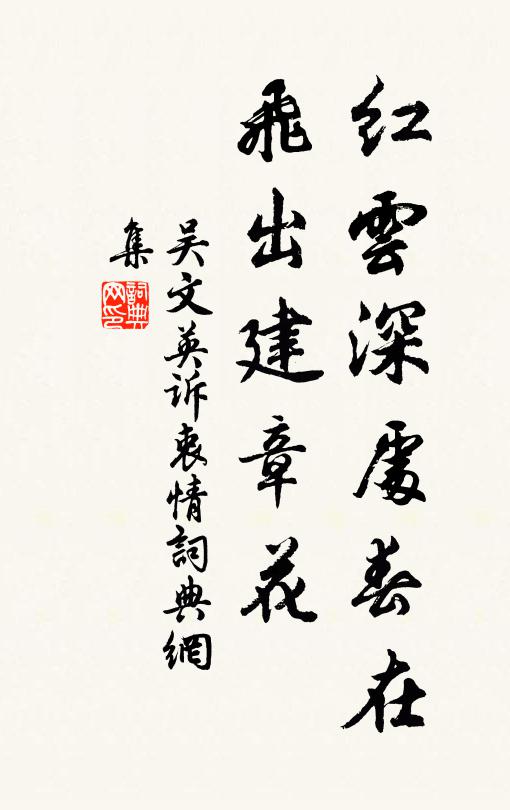 紅雲深處春在
飛出建章花
吴文英訴衷情詞典網
集
詞典
网印